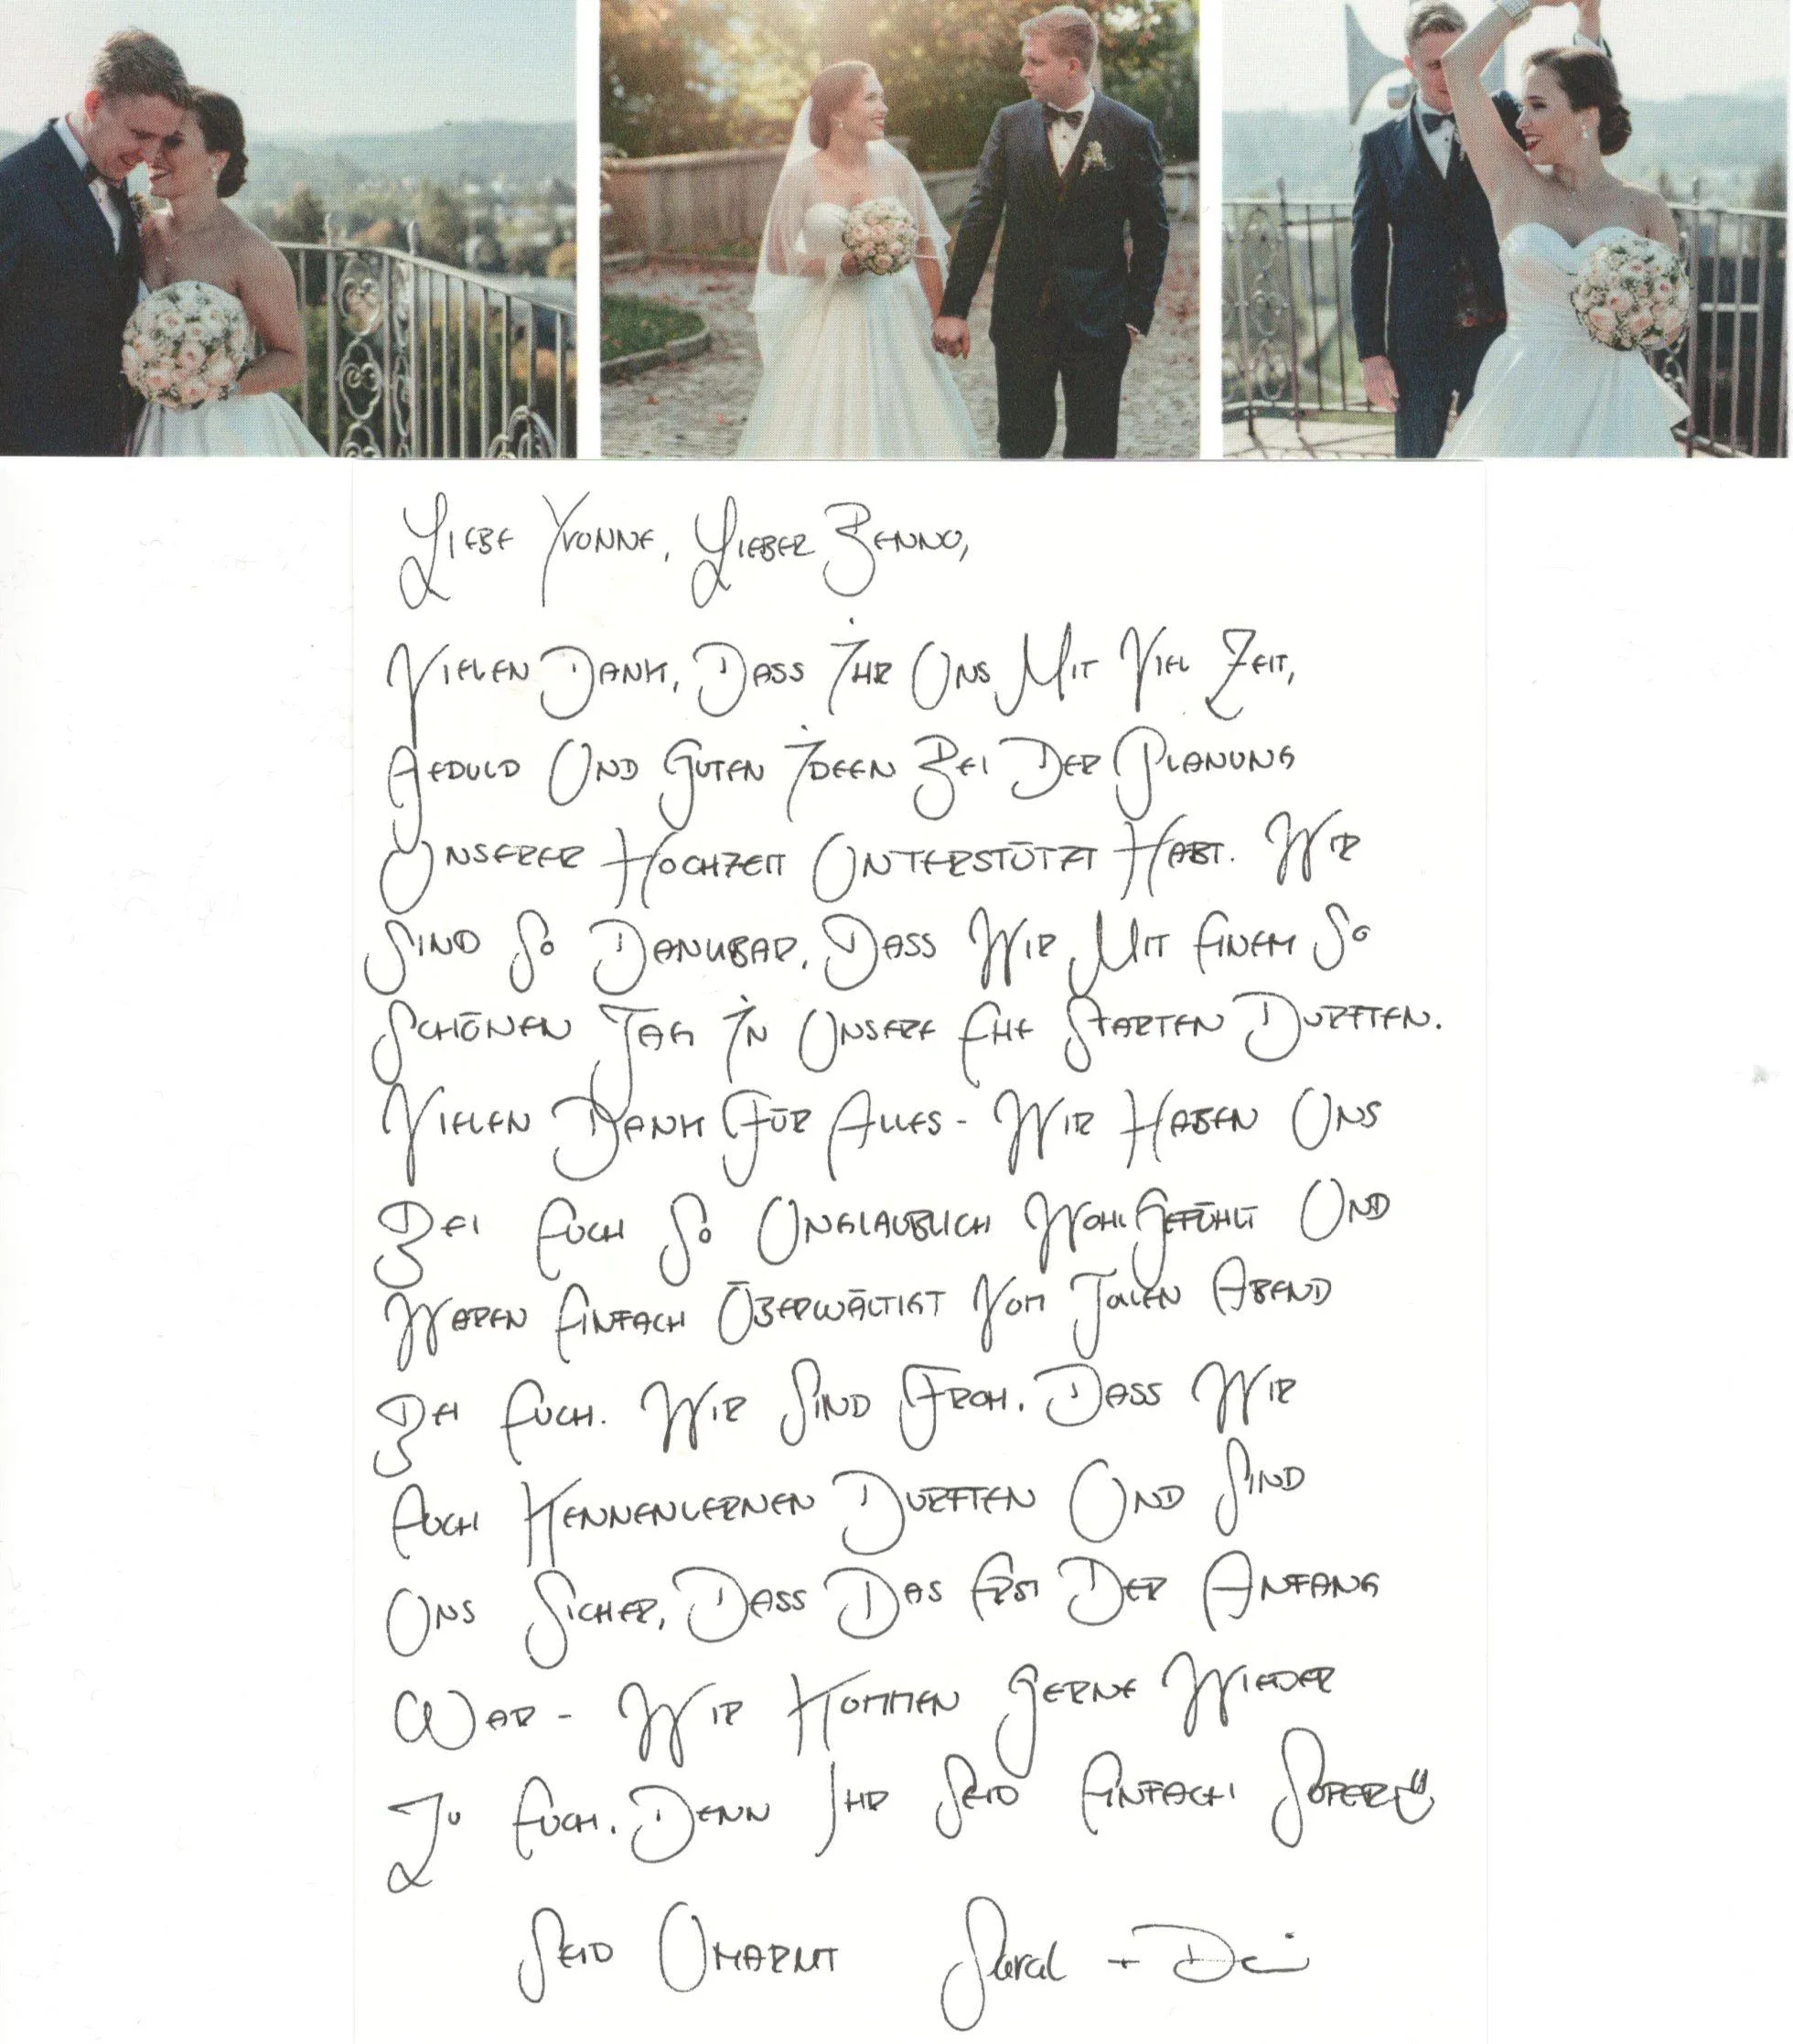 Liebe Yvonne, Lieber Benno,
Vielen Dank, Dass Ihr Uns Mit Viel Zeit,
Geduld Und Guten Ideen Bei Der Planung
Unserer Hochzeit Unterstützt Habt. Wir
Sind So Dankbar, Dass Wir Mit Einem So
Schönen Tag In Unsere Ehe Starten Durften.
Vielen Dank Für Alles - Wir Haben Uns
Bei Euch So Unglaublich Wohl Gefühlt Und
Waren Einfach Überwältigt Vom Tollen Abend
Bei Euch. Wir Sind Froh, Dass Wir
Euch Kennenlernen Durften Und Sind
Uns Sicher, Dass Das Erst Der Anfang
War - Wir Kommen Gerne Wieder
Zu Euch, Denn Ihr Seid Einfach Super
Seid Umarmt Sarah +